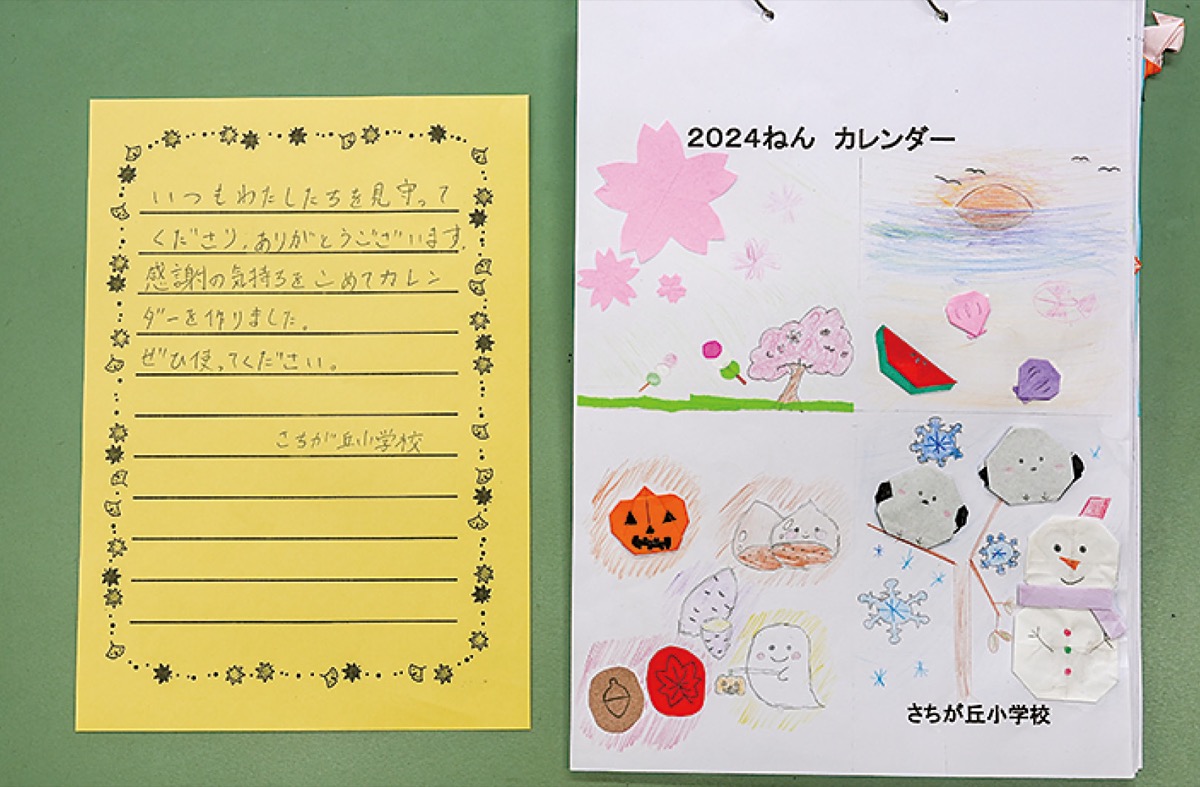 いつもわたしたちを見守って
くださり、ありがとうございます。
感謝の気持ちをこめてカレン
ダーを作りました。
ぜひ使ってください。
さちが丘小学校
2024ねん カレンダー
さちが丘小学校